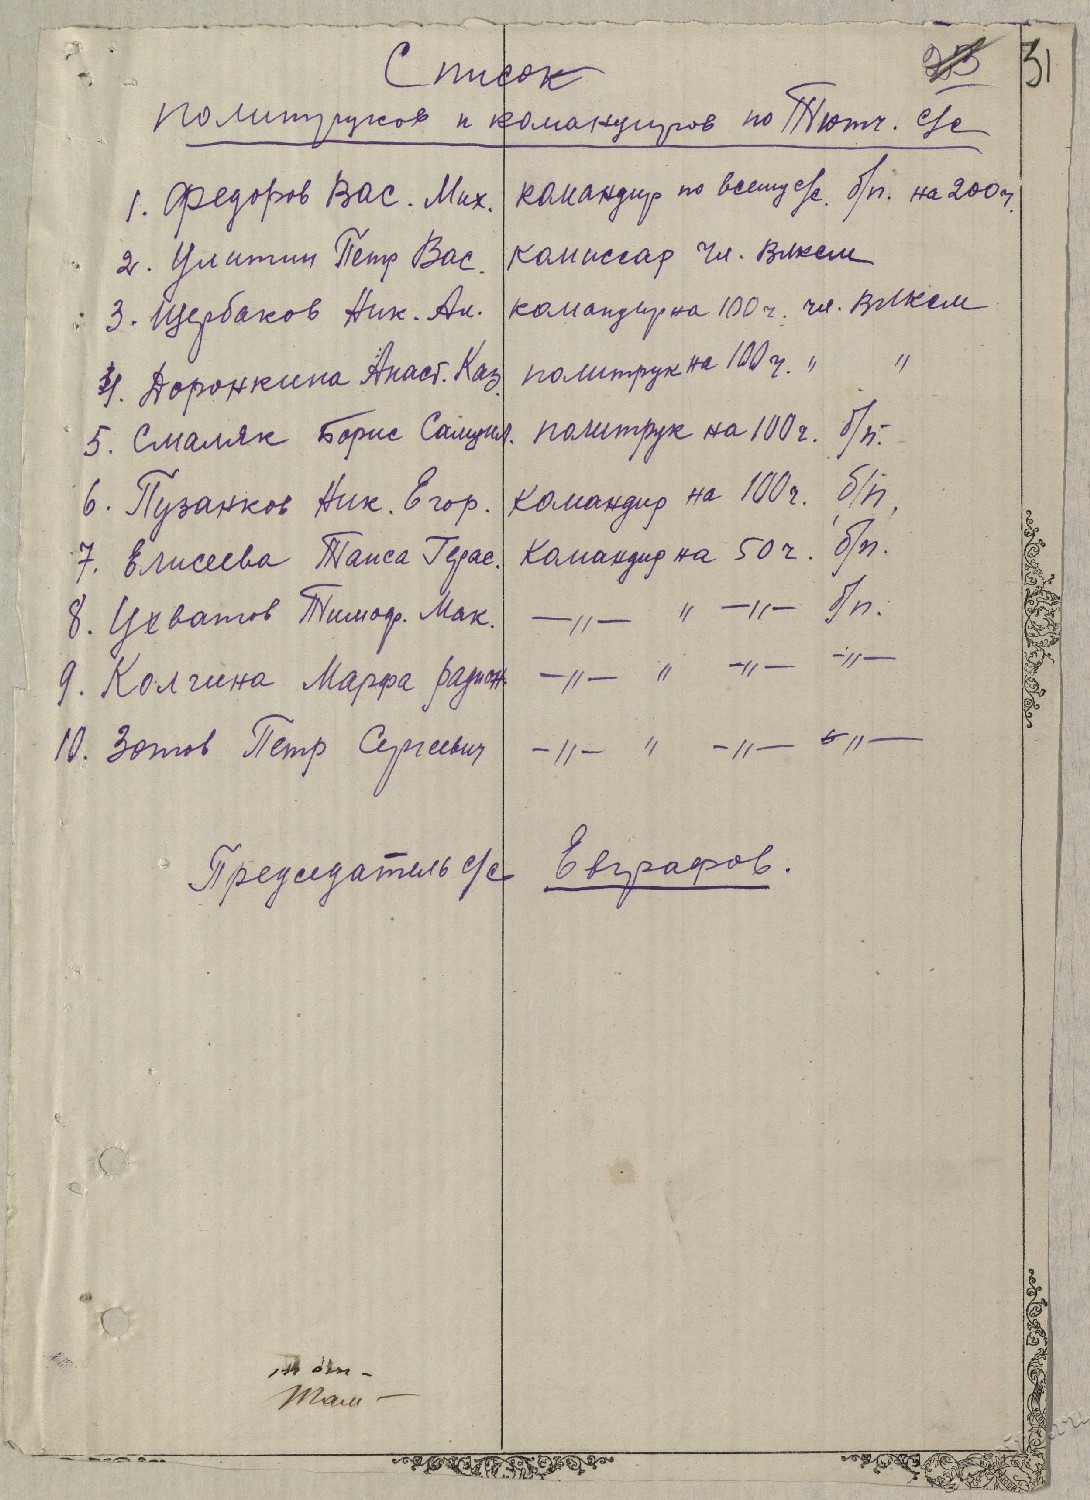 31
Список
политруков и командиров по Тютч. с/с
1. Федоров Вас. Мих. командир по всему с/с. б/п. на 200 ч.
2. Улитин Петр Вас. комиссар чл. Влксм
3. Щербаков Ник. Ан. командир на 100 ч. чл. Влксм
4. Доронкина Анаст. Каз. политрук на 100 ч. " "
5. Смаляк Борис Самуил. политрук на 100 ч. б/п.
6. Пузанков Ник. Егор. командир на 100 ч. б/п.
7. Елисеева Таиса Герас. командир на 50 ч. б/п.
8. Ухватов Тимоф. Мак. —„— „ —„— б/п.
9. Колгина Марфа Радион. —„— „ —„— —„—
10. Зотов Петр Сергеевич —„— „ —„— —„—
Председатель с/с Евграфов.